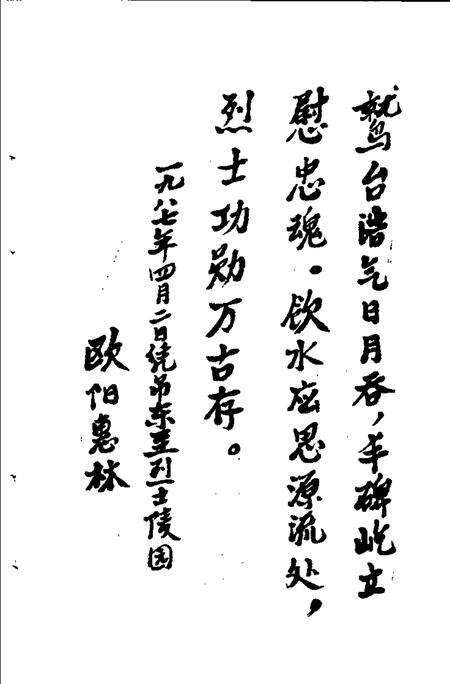 鹫台浩气日月吞，丰碑屹立
慰忠魂。饮水应思源流处，
烈士功勋万古存。
一九八七年四月二日凭吊东至烈士陵园
欧阳惠林